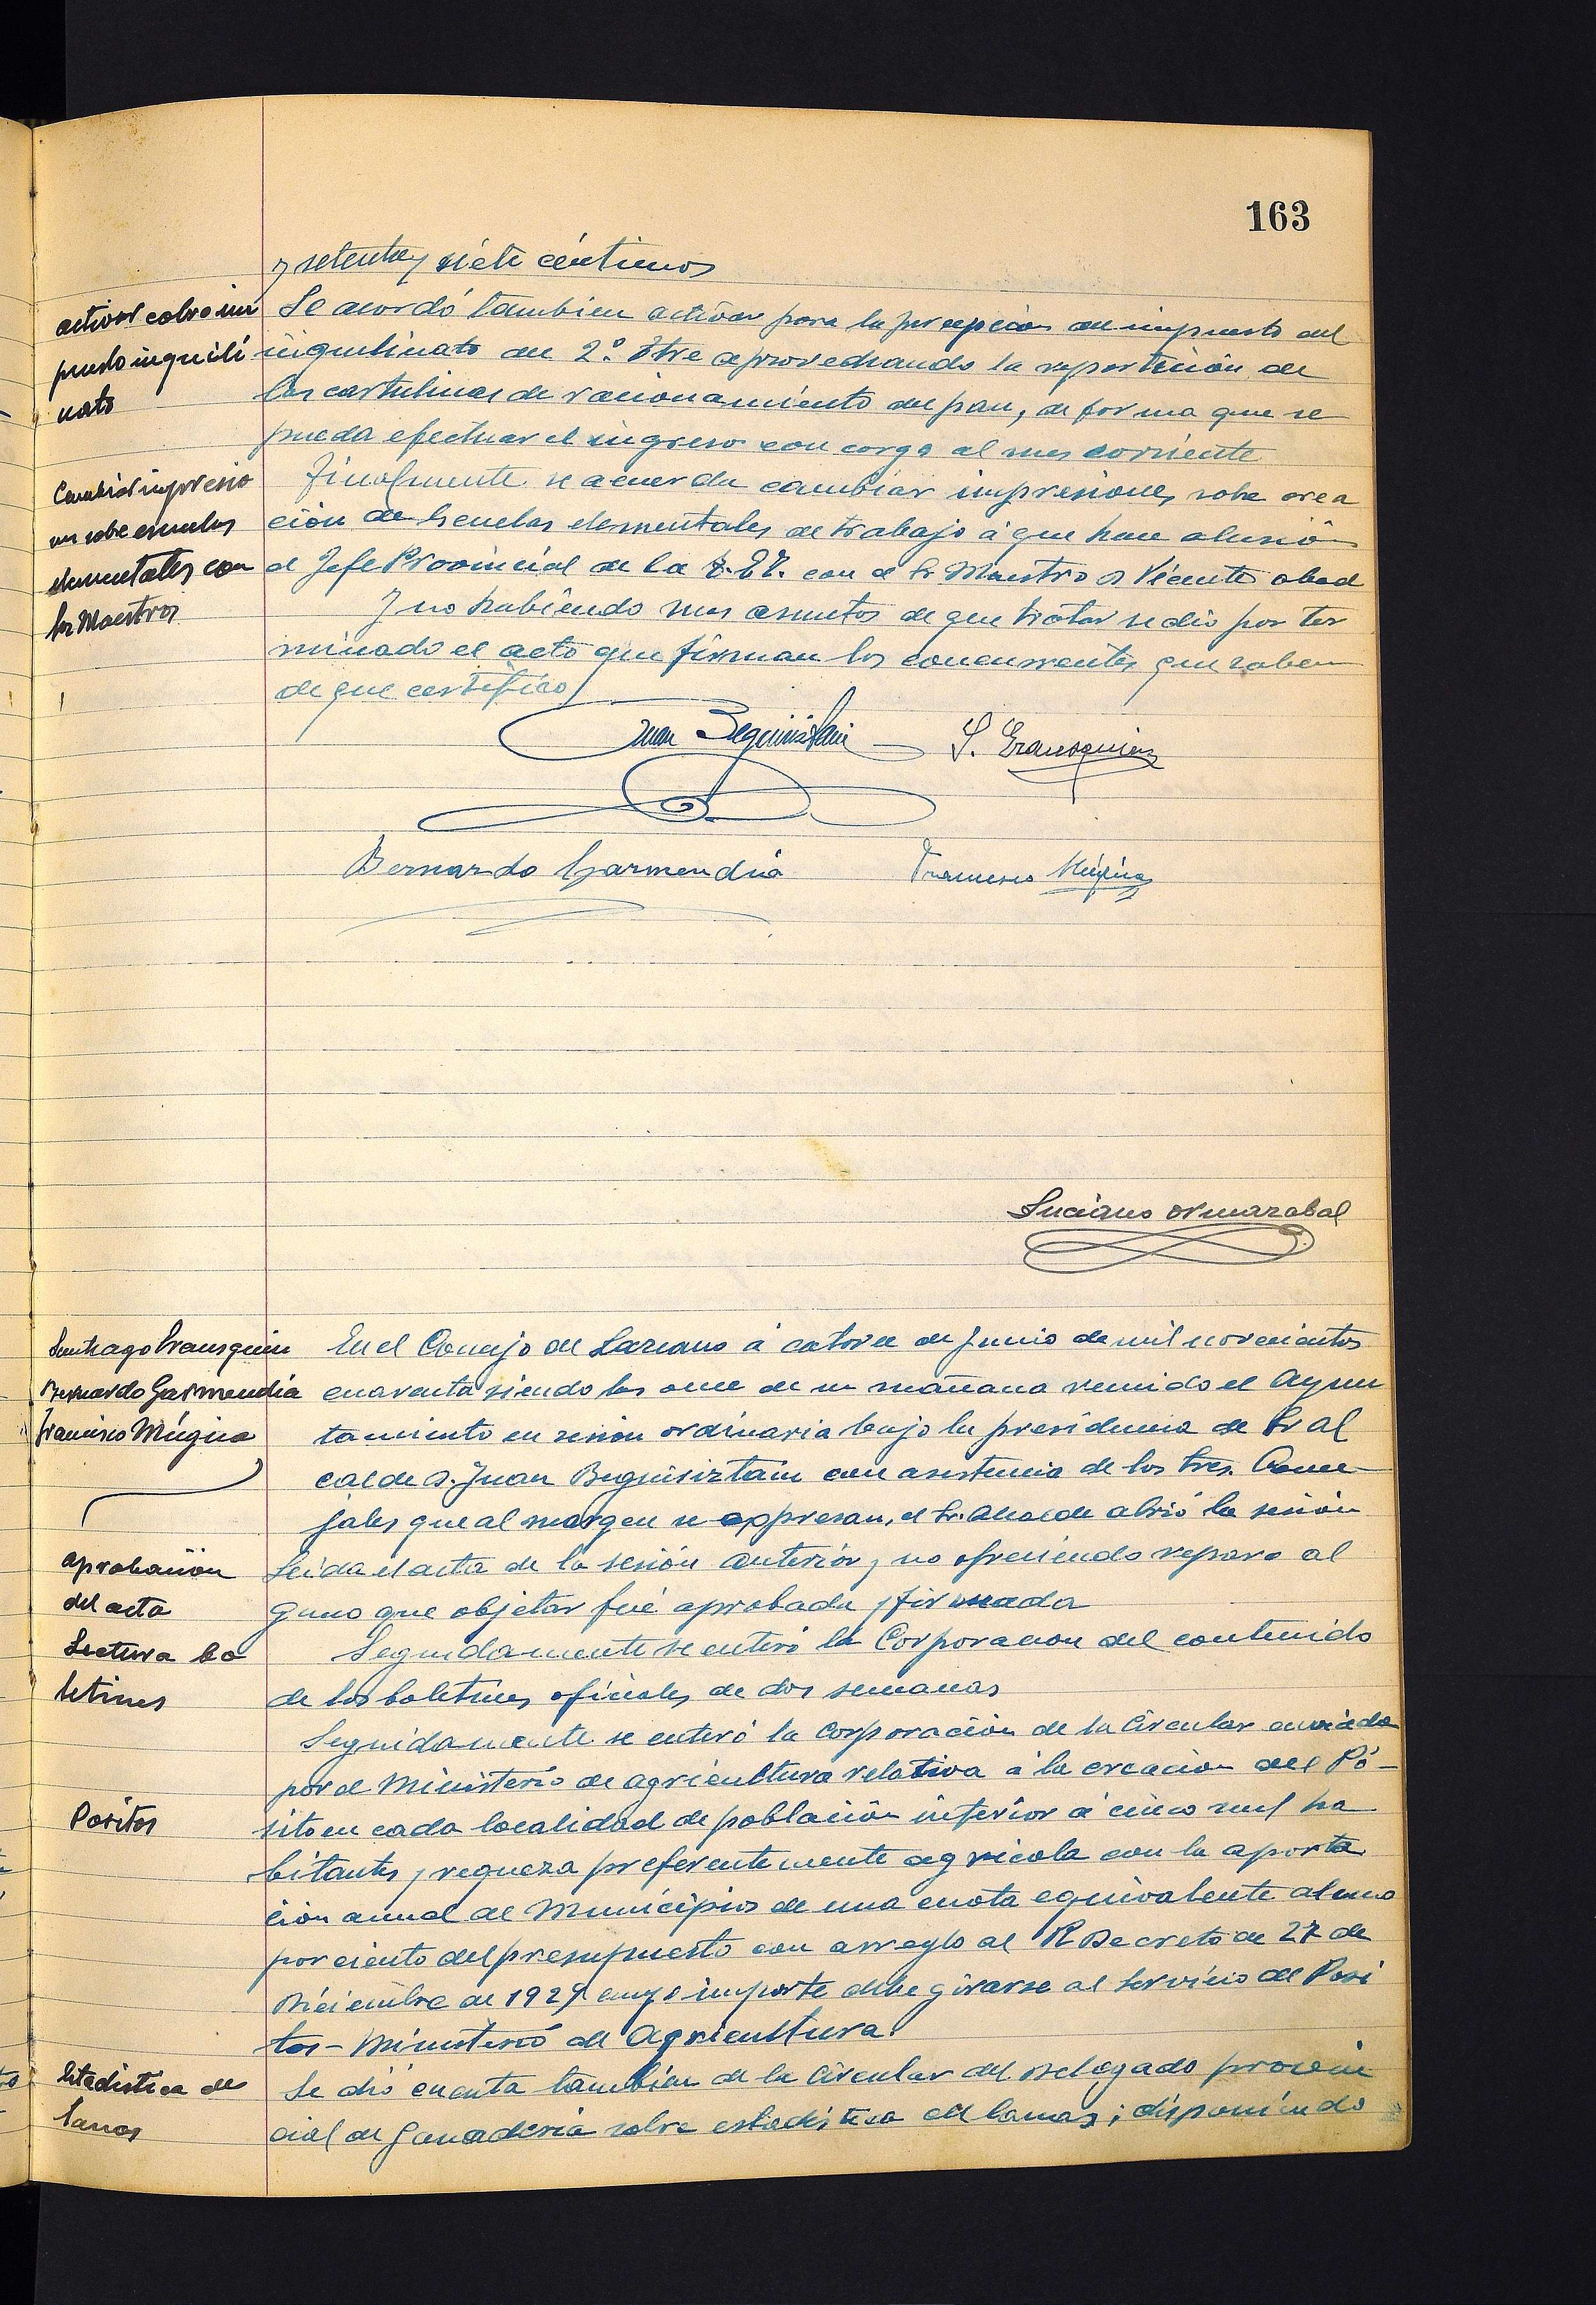 163
y setenta y siete céntimos
activar cobro im
puesto inquili
nato
Se acordó tambien activar para la percepcion del impuesto del
inquilinato del 2º. tre aprovechando la repartición de
las cartulinas de racionamiento del pan, de forma que se
pueda efectuar el ingreso con cargo al mes corriente
Cambiar impresio
nes sobre escuelas
elementales con
los Maestros
Finalmente se acuerda cambiar impresiones sobre crea
ción de Escuelas elementales de trabajo á que hace alusión
el Jefe Provincial de la con el Sr Maestro D Vicente abad
Y no habiendo mas asuntos de que tratar se dió por ter
minado el acto que firman los concurrentes que saben
de que certifico
Juan Beguiristain S. Eransquin
Bernardo Garmendia Francisco Múgica
Luciano Ormazabal
Santiago Eransquin
Bernardo Garmendia
Francisco Múgica
En el Concejo de Lazcano á catorce de Junio de mil novecientos
cuarenta siendo las once de su mañana reunido el Ayun
tamiento en sesion ordinaria bajo la presidencia de Sr Al
calde D. Juan Beguiristain con asistencia de los Sres. Conce
jales que al margen se expresan, el Sr. Alcalde abrió la sesión
aprobación
del acta
Leida el acta de la sesión anterior y no ofreciendo reparo al
guno que objetar fué aprobada y firmada
Lectura bo
letines
Seguidamente se enteró la Corporacion del contenido
de los boletines oficiales de dos semanas
Seguidamente se enteró la Corporación de la Circular enviada
por el Ministerio de Agricultura relativa á la creacion del Pó-
Positos
sito en cada localidad de población inferior á cinco mil ha
bitantes y riqueza preferentemente agricola con la aporta
cion anual de Municipios de una cuota equivalente al uno
por ciento del presupuesto con arreglo al R Decreto de 27 de
Diciembre de 1929 cuyo importe debe girarse al Servicio de Posi
tos - Ministerio de Agricultura.
Estadistica de
lanas
Se dió cuenta también de la Circular del Delegado provin
cial de Ganaderia sobre estadistica de lanas; disponiendo